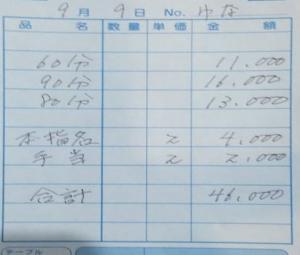 9月 9日 No. ゆな
品名 数量 単価 金額
60分 11.000
90分 16.000
80分 13.000
本指名 2 4.000
手当 2 2.000
合計 46.000
テーブル